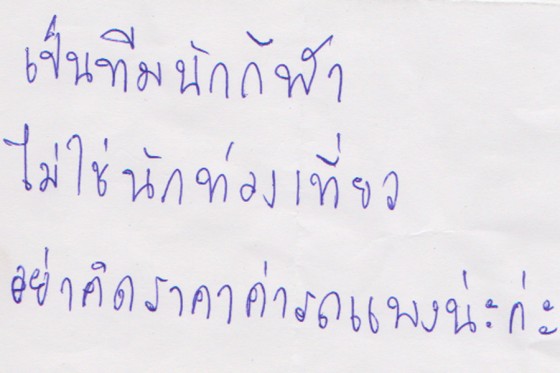 เป็นทีมนักกีฬา
ไม่ใช่นักท่องเที่ยว
อย่าคิดราคาค่ารถแพงน่ะค่ะ